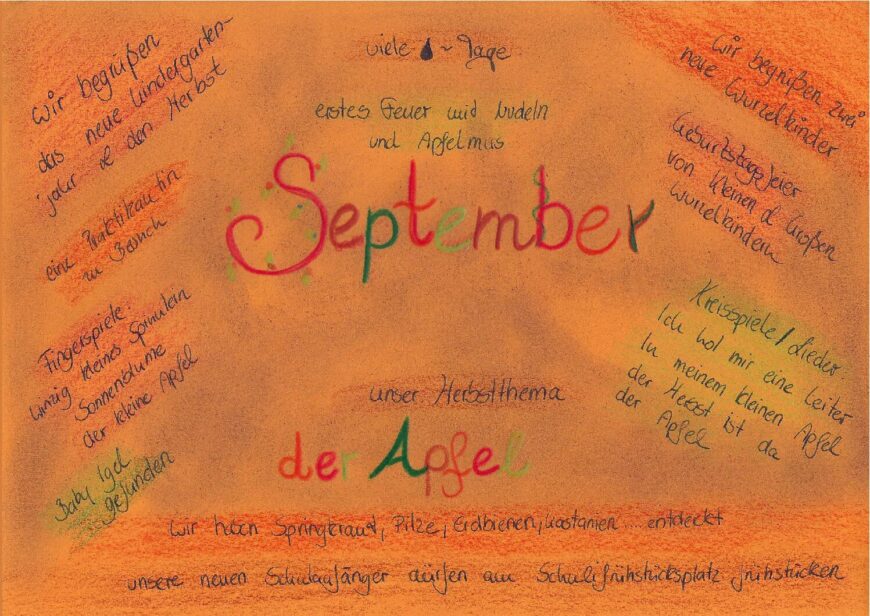 wir begrüßen
das neue Kindergarten-
jahr & den Herbst
eine Praktikantin
zu Besuch
Fingerspiele:
Winzig kleines Spinnlein
Sonnenblume
der kleine Apfel
Baby Igel
gefunden
viele ~ Tage
erstes Feuer mid Nudeln
und Apfelmus
September
unser Herbstthema
der Apfel
wir begrüßen zwei
neue Wurzelkinder
Geburtstagsfeier
von kleinen & Großen
Wurzelkindern
Kreisspiele/Lieder:
Ich hol mir eine Leiter
In meinem kleinen Apfel
der Herbst ist da
der Apfel
wir haben Springkraut, Pilze, Erdbienen, Kastanien.... entdeckt
unsere neuen Schulanfänger dürfen am Schulifrühstücksplatz frühstücken